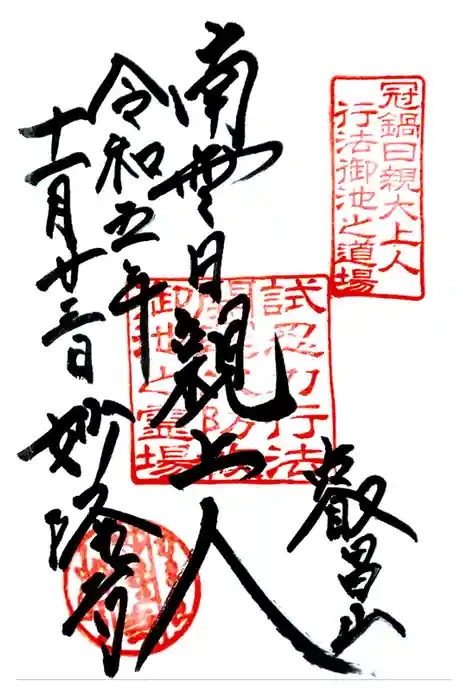 冠鍋日親大上人
行法御池之道場
叡昌山
南無日親上人
試忍力行法
御池之霊場
令和五年
十一月廿三日
妙隆寺